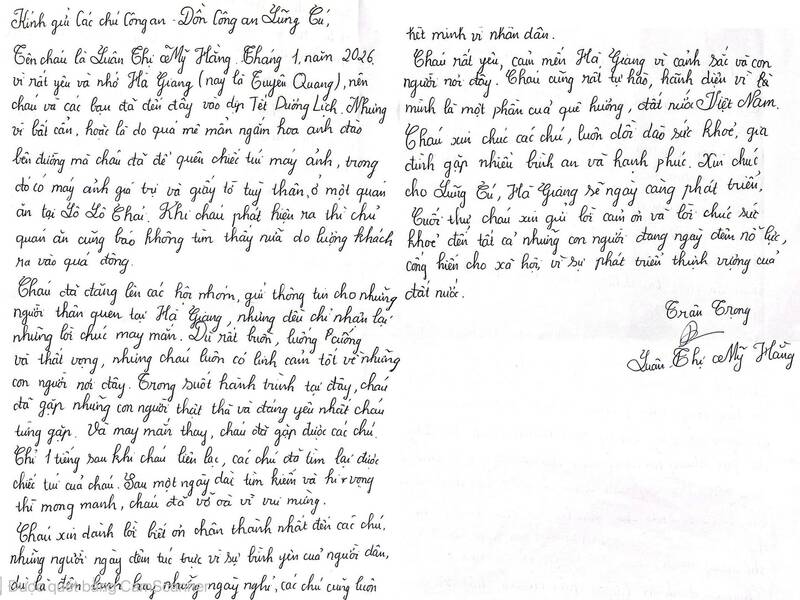 Kính gửi Các chú Công an - Đồn Công an Lũng Cú,
Tên cháu là Luân Thị Mỹ Hằng. Tháng 1, năm 2026
vì rất yêu và nhớ Hà Giang (nay là Tuyên Quang), nên
cháu và các bạn đã đến đây vào dịp Tết Dương Lịch. Nhưng
vì bất cẩn, hoặc là do quá mê mẩn ngắm hoa anh đào
bên đường mà cháu đã để quên chiếc túi máy ảnh, trong
đó có máy ảnh giá trị và giấy tờ tuỳ thân, ở một quán
ăn tại Lô Lô Chải. Khi cháu phát hiện ra thì chủ
quán ăn cũng báo không tìm thấy nữa do lượng khách
ra vào quá đông.
Cháu đã đăng lên các hội nhóm, gửi thông tin cho những
người thân quen tại Hà Giang, nhưng đều chỉ nhận lại
những lời chúc may mắn. Dù rất buồn, luống cuống
và thất vọng, nhưng cháu luôn có linh cảm tốt về những
con người nơi đây. Trong suốt hành trình tại đây, cháu
đã gặp những con người thật thà và đáng yêu nhất cháu
từng gặp. Và may mắn thay, cháu đã gặp được các chú.
Chỉ 1 tiếng sau khi cháu liên lạc, các chú đã tìm lại được
chiếc túi của cháu. Sau một ngày dài tìm kiếm và hi vọng
thì mong manh, cháu đã vỡ oà vì vui mừng.
Cháu xin dành lời biết ơn chân thành nhất đến các chú,
những người ngày đêm túc trực vì sự bình yên của người dân,
dù là đêm lạnh hay những ngày nghỉ, các chú cũng luôn
Được quét bằng CamScanner
hết mình vì nhân dân.
Cháu rất yêu, cảm mến Hà Giang vì cảnh sắc và con
người nơi đây. Cháu cũng rất tự hào, hãnh diện vì là
mình là một phần của quê hương, đất nước Việt Nam.
Cháu xin chúc các chú, luôn dồi dào sức khoẻ, gia
đình gặp nhiều bình an và hạnh phúc. Xin chúc
cho Lũng Cú, Hà Giang sẽ ngày càng phát triển,
Cuối thư cháu xin gửi lời cảm ơn và lời chúc sức
khoẻ đến tất cả những con người đang ngày đêm nỗ lực,
cống hiến cho xã hội, vì sự phát triển thịnh vượng của
đất nước.
Trân Trọng
Luân Thị Mỹ Hằng